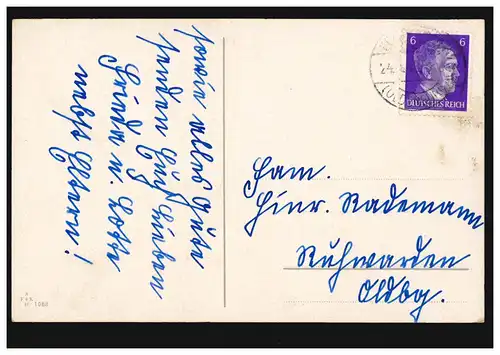 sowie alles Gute
senden Euch Lieben
Frieda u. Lotte
nebst Eltern!
6 6
DEUTSCHES REICH
24.
(OLD
Fam.
Hinr. Rademann
Ruhwarden
Oldbg.